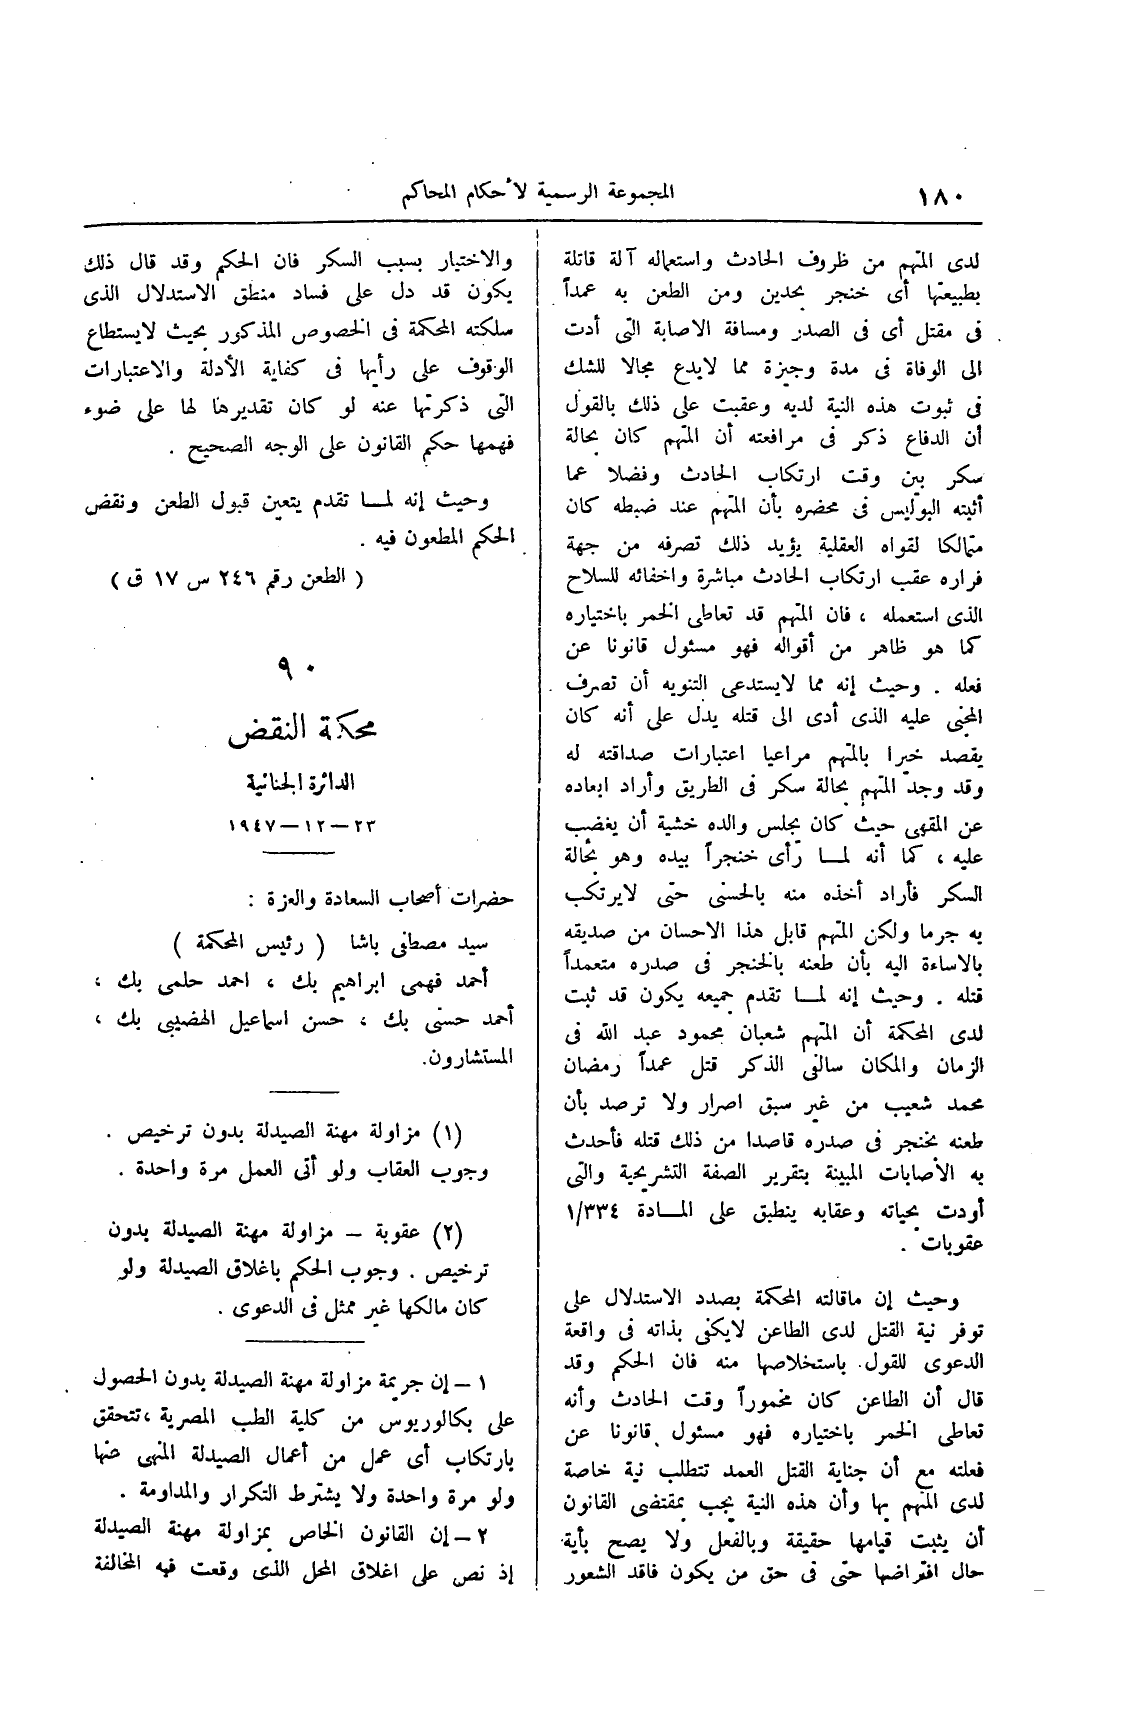 ١٨٠
المجموعة الرسمية لأحكام المحاكم
لدى المتهم من ظروف الحادث واستعماله آلة قاتلة
بطبيعتها أى خنجر بحدين ومن الطعن به عمداً
فى مقتل أى فى الصدر ومسافة الاصابة التى أدت
الى الوفاة فى مدة وجيزة مما لايدع مجالا للشك
فى ثبوت هذه النية لديه وعقبت على ذلك بالقول
أن الدفاع ذكر فى مرافعته أن المتهم كان بحالة
سكر بين وقت ارتكاب الحادث وفضلا عما
أثبته البوليس فى محضره بأن المتهم عند ضبطه كان
متمالكا لقواه العقلية يؤيد ذلك تصرفه من جهة
فراره عقب ارتكاب الحادث مباشرة واخفائه للسلاح
الذى استعمله ، فان المتهم قد تعاطى الخمر باختياره
كما هو ظاهر من أقواله فهو مسئول قانونا عن
فعله . وحيث إنه مما لايستدعى التنويه أن تصرف
المجنى عليه الذى أدى الى قتله يدل على أنه كان
يقصد خيرا بالمتهم مراعيا اعتبارات صداقته له
وقد وجد المتهم بحالة سكر فى الطريق وأراد ابعاده
عن المقهى حيث كان يجلس والده خشية أن يغضب
عليه ، كما أنه لمـا رأى خنجراً بيده وهو بحالة
السكر فأراد أخذه منه بالحسنى حتى لايرتكب
به جرما ولكن المتهم قابل هذا الاحسان من صديقه
بالاساءة اليه بأن طعنه بالخنجر فى صدره متعمداً
قتله . وحيث إنه لمـا تقدم جميعه يكون قد ثبت
لدى المحكمة أن المتهم شعبان محمود عبد الله فى
الزمان والمكان سالفى الذكر قتل عمداً رمضان
محمد شعيب من غير سبق اصرار ولا ترصد بأن
طعنه بخنجر فى صدره قاصدا من ذلك قتله فأحدث
به الأصابات المبينة بتقرير الصفة التشريحية والتى
أودت بحياته وعقابه ينطبق على المـادة ١/٣٣٤
عقوبات .
وحيث إن ماقالته المحكمة بصدد الاستدلال على
توفر نية القتل لدى الطاعن لايكفى بذاته فى واقعة
الدعوى للقول باستخلاصها منه فان الحكم وقد
قال أن الطاعن كان مخموراً وقت الحادث وأنه
تعاطى الخمر باختياره فهو مسئول قانونا عن
فعلته مع أن جناية القتل العمد تتطلب نية خاصة
لدى المتهم بها وأن هذه النية يجب بمقتضى القانون
أن يثبت قيامها حقيقة وبالفعل ولا يصح بأية
حال افتراضها حتى فى حق من يكون فاقد الشعور
والاختيار بسبب السكر فان الحكم وقد قال ذلك
يكون قد دل على فساد منطق الاستدلال الذى
سلكته المحكمة فى الخصوص المذكور بحيث لايستطاع
الوقوف على رأيها فى كفاية الأدلة والاعتبارات
التى ذكرتها عنه لو كان تقديرها لها على ضوء
فهمها حكم القانون على الوجه الصحيح .
وحيث إنه لمـا تقدم يتعين قبول الطعن ونقض
الحكم المطعون فيه .
( الطعن رقم ٢٤٦ س ١٧ ق )
٩٠
محكمة النقض
الدائرة الجنائية
٢٣ – ١٢ – ١٩٤٧
حضرات أصحاب السعادة والعزة :
سيد مصطفى باشا ( رئيس المحكمة )
أحمد فهمى ابراهيم بك ، احمد حلمى بك ،
أحمد حسنى بك ، حسن اسماعيل الهضيبى بك ،
المستشارون.
(١) مزاولة مهنة الصيدلة بدون ترخيص .
وجوب العقاب ولو أتى العمل مرة واحدة .
(٢) عقوبة – مزاولة مهنة الصيدلة بدون
ترخيص . وجوب الحكم باغلاق الصيدلة ولو
كان مالكها غير ممثل فى الدعوى .
١ – إن جريمة مزاولة مهنة الصيدلة بدون الحصول
على بكالوريوس من كلية الطب المصرية ، تتحقق
بارتكاب أى عمل من أعمال الصيدلة المنهى عنها
ولو مرة واحدة ولا يشترط التكرار والمداومة .
٢ – إن القانون الخاص بمزاولة مهنة الصيدلة
إذ نص على اغلاق المحل الذى وقعت فيه المخالفة